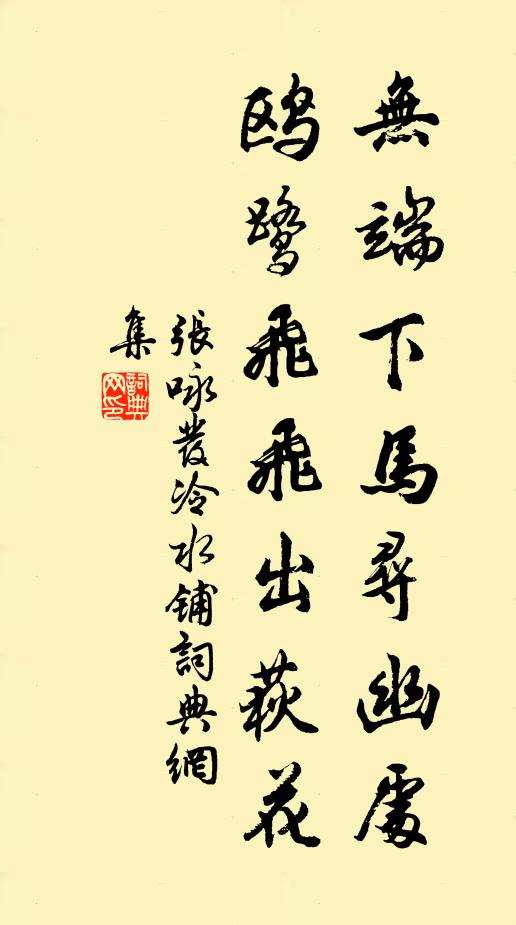 無端下馬尋幽處
鸥鷺飛飛出荻花
張咏發冷水鋪詞典網
集
詞典
网印